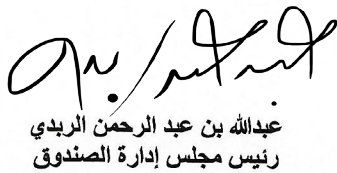 عبدالله بن عبد الرحمن الربدي
رئيس مجلس إدارة الصندوق